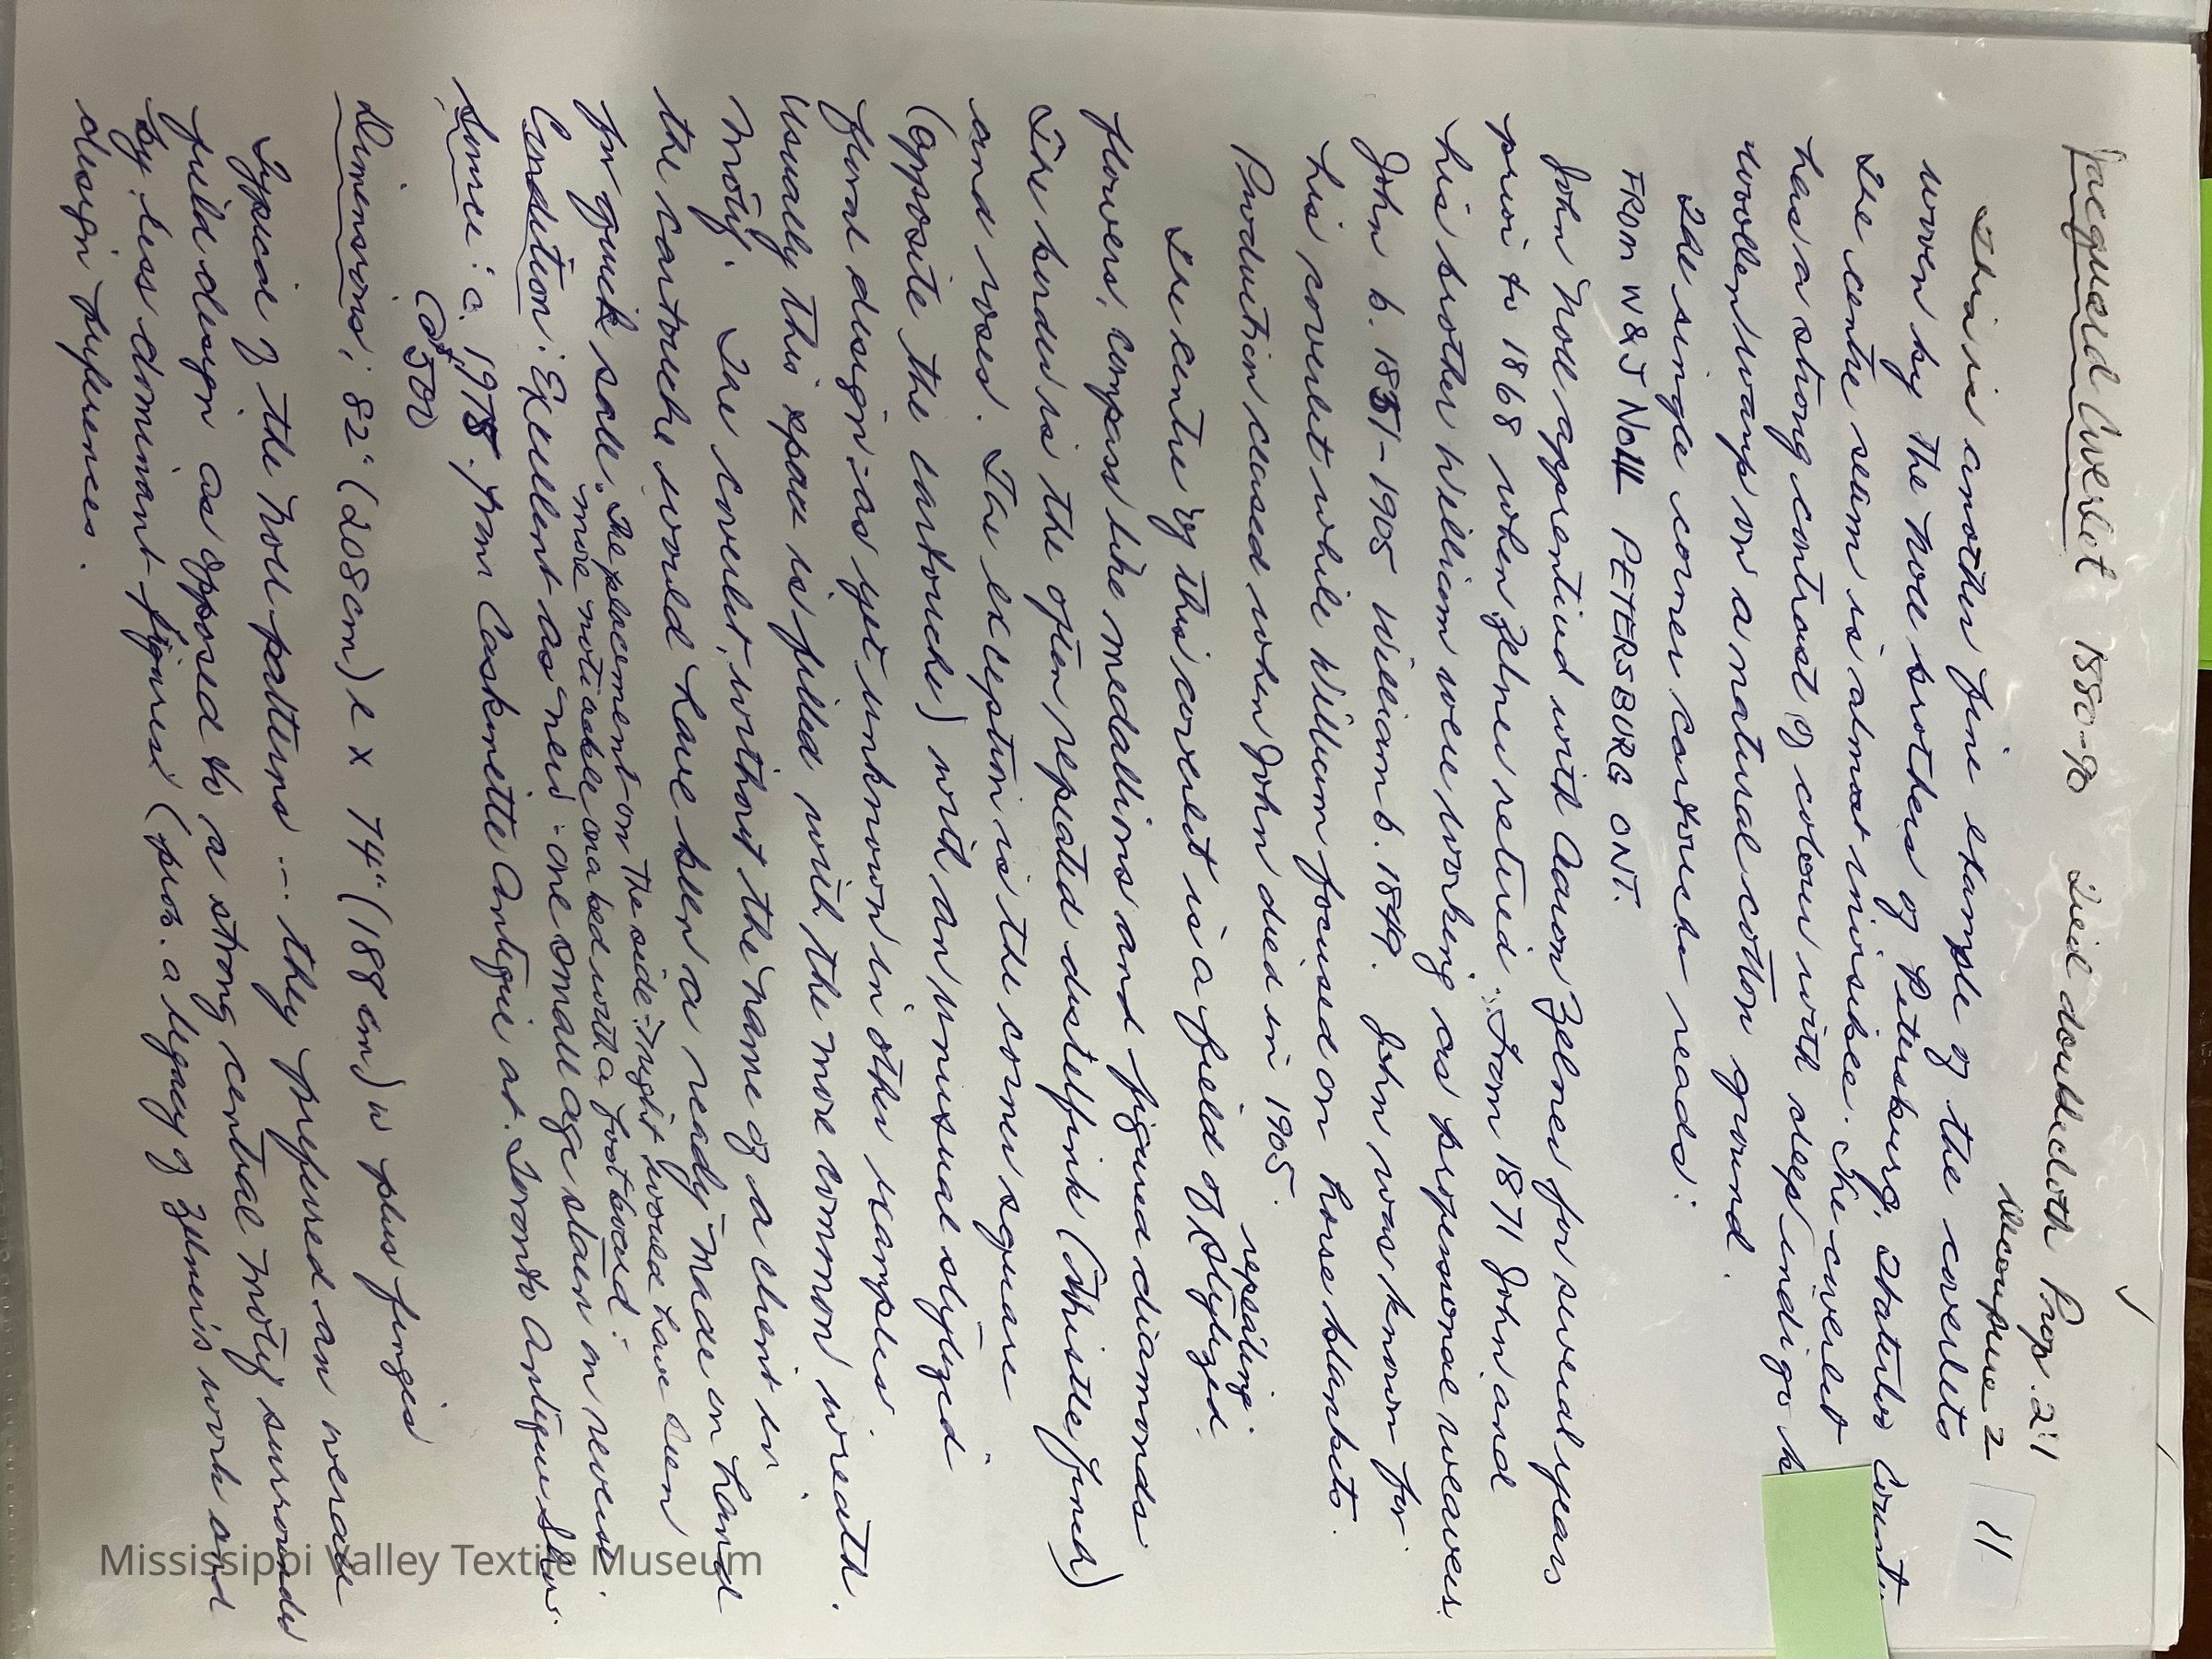 Jacquard Coverlet 1880-90 Tied doublecloth Prop. 2:1
Decoupure 2
11
This is another fine example of the coverlets
woven by the Noll brothers of Petersburg, Waterloo County.
The centre seam is almost invisible. The coverlet
has a strong contrast of colour with deep indigo
woollen warp on a natural cotton ground.
The single corner cartouche reads:
FROM W & J Noll PETERSBURG ONT.
John Noll apprenticed with Aaron Zelner for several years
prior to 1868 when Zelner retired. From 1871 John and
his brother William were working as professional weavers.
John b. 1851-1905 William b. 1849. John was known for
his coverlet while William focused on horse blankets.
Production ceased when John died in 1905.
The centre of this coverlet is a field of repeating stylized
flowers, compass like medallions and figured diamonds
The border is the often repeated distelfink (thistle finch)
and roses. The exception is the corner square
(opposite the cartouche) with an unusual stylized
floral design - as yet unknown in other examples.
Usually this space is filled with the more common wreath
motif. The coverlet, without the name of a client in
the cartouche would have been a ready made on hand
for quick sale. The placement on the side: right would have been
more noticeable on a bed with a foot board.
Condition: Excellent as new - one small age stain on reverse.
Source: c. 1978. from Casknette Antique at Toronto Antique Show.
(@ $500
Dimensions: 82" (208cm) l x 74" (188 cm) w plus fringes
Typical of the Noll patterns ... they prefered an overall
field design as opposed to a strong central motif surrounded
by less dominant figures (prob. a legacy of Zelner's work and
design preferences.
Mississippi Valley Textile Museum